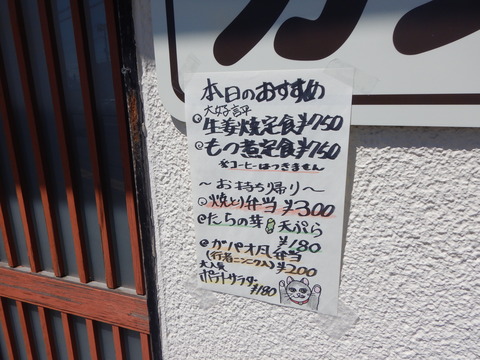 本日のおすすめ
大好評
生姜焼定食¥750
もつ煮定食¥750
※コーヒーはつきません
～お持ち帰り～
焼とり弁当 ¥300
たらの芽天ぷら
¥180
ガパオ風弁当
(行者ニンニク入) ¥200
大人気
ポテトサラダ
¥180